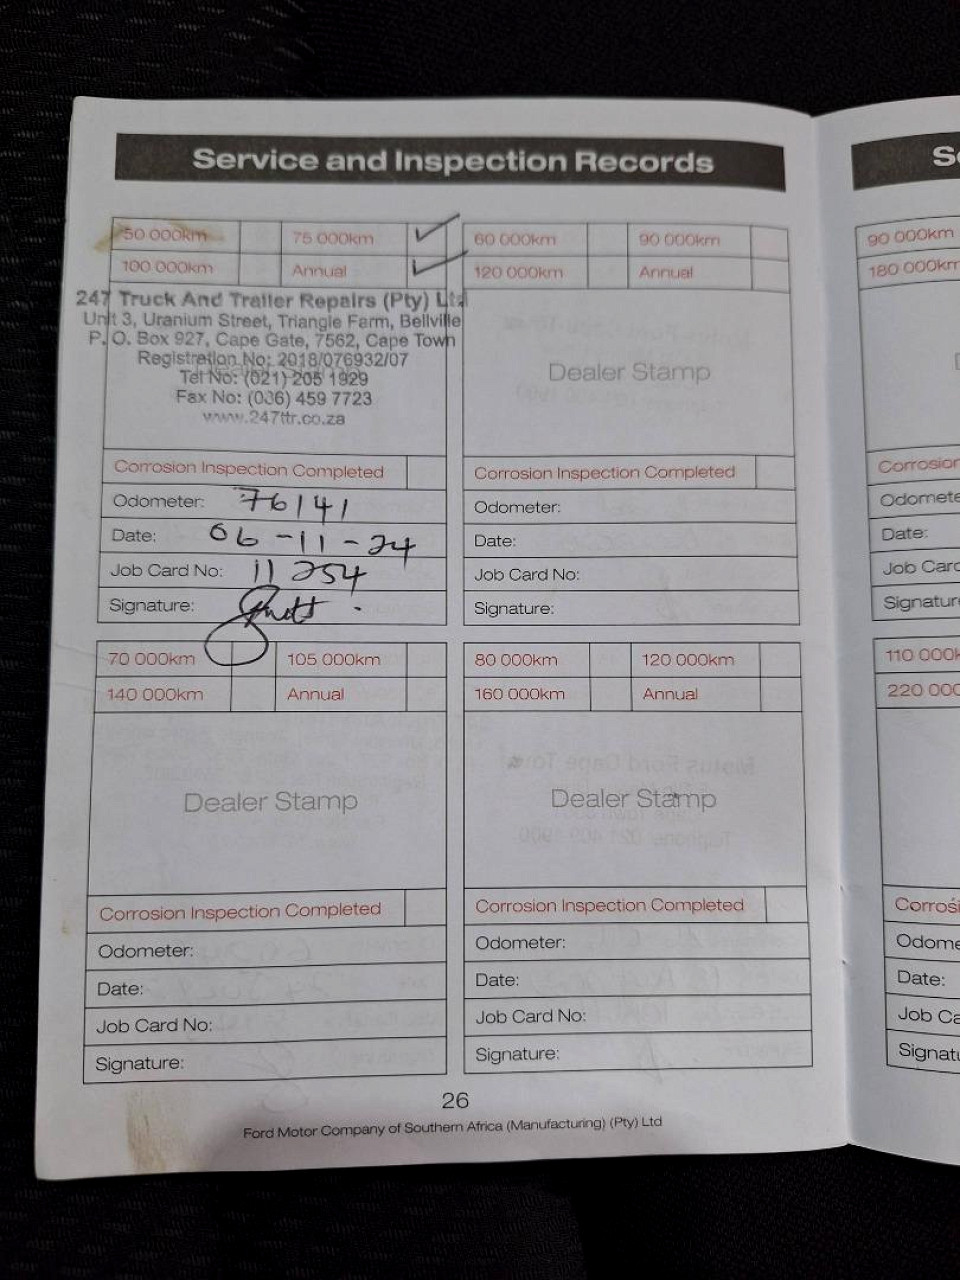 Service and Inspection Records
50 000km 75 000km ✓
100 000km Annual ✓
247 Truck And Trailer Repairs (Pty) Ltd
Unit 3, Uranium Street, Triangle Farm, Bellville
P. O. Box 927, Cape Gate, 7562, Cape Town
Registration No: 2018/076932/07
Tel No: (021) 205 1929
Fax No: (036) 459 7723
www.247ttr.co.za
Corrosion Inspection Completed
Odometer: 76141
Date: 06-11-24
Job Card No: 11254
Signature:
60 000km 90 000km
120 000km Annual
Dealer Stamp
Corrosion Inspection Completed
Odometer:
Date:
Job Card No:
Signature:
70 000km 105 000km
140 000km Annual
Dealer Stamp
Corrosion Inspection Completed
Odometer:
Date:
Job Card No:
Signature:
80 000km 120 000km
160 000km Annual
Dealer Stamp
Corrosion Inspection Completed
Odometer:
Date:
Job Card No:
Signature:
26
Ford Motor Company of Southern Africa (Manufacturing) (Pty) Ltd
90 000km
180 000km
Date:
110 000k
Date: